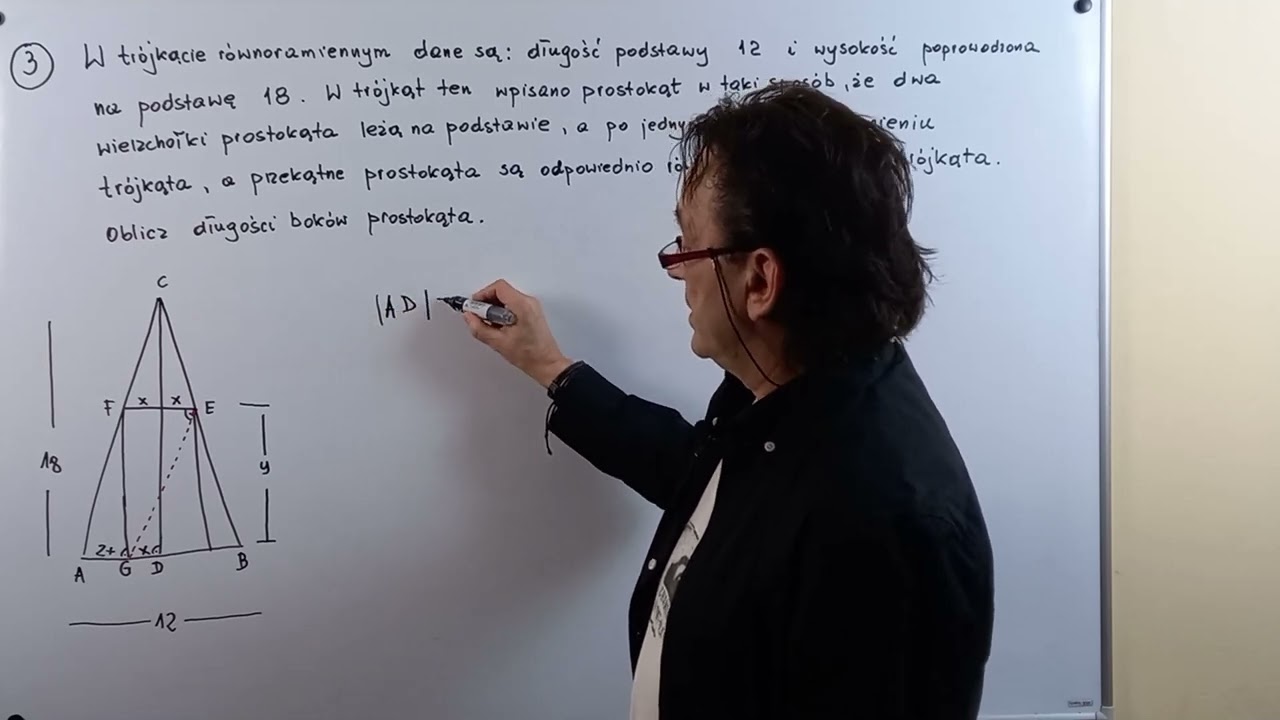 3
W trójkącie równoramiennym dane są: długość podstawy 12 i wysokość poprowadzona
na podstawę 18. W trójkąt ten wpisano prostokąt w taki sposób, że dwa
wierzchołki prostokąta leżą na podstawie, a po
trójkąta, a przekątne prostokąta są odpowiednio
Oblicz długości boków prostokąta.
C
|AD|
F x x E
18
y
z x
A G D B
12